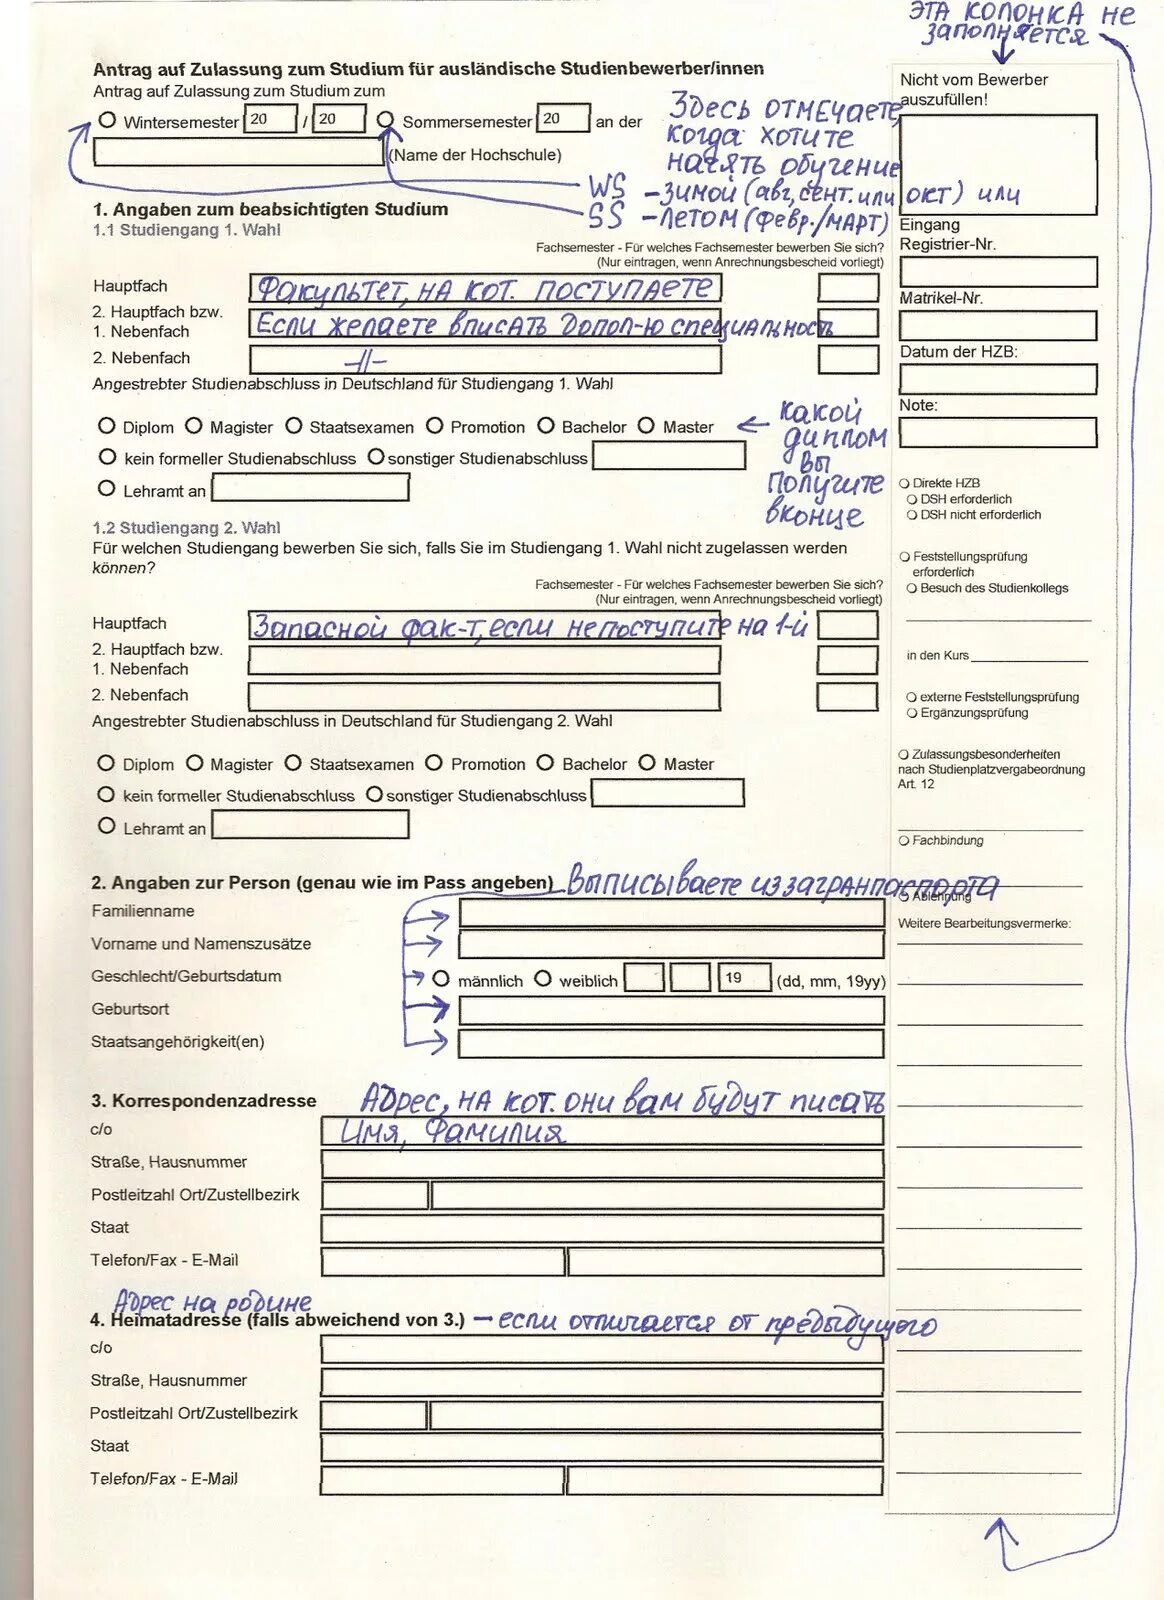 ЭТА КОЛОНКА НЕ
ЗАПОЛНЯЕТСЯ
Antrag auf Zulassung zum Studium für ausländische Studienbewerber/innen
Antrag auf Zulassung zum Studium zum
Wintersemester 20 / 20 Sommersemester 20 an der
(Name der Hochschule)
Здесь отмечаете,
когда хотите
начать обучение
WS - зимой (авг, сент. или окт) или
SS - летом (февр./март)
1. Angaben zum beabsichtigten Studium
1.1 Studiengang 1. Wahl
Fachsemester - Für welches Fachsemester bewerben Sie sich?
(Nur eintragen, wenn Anrechnungsbescheid vorliegt)
Hauptfach Факультет, на кот. поступаете
2. Hauptfach bzw.
1. Nebenfach Если желаете вписать допол-ю специальность
2. Nebenfach -//-
Angestrebter Studienabschluss in Deutschland für Studiengang 1. Wahl
Diplom Magister Staatsexamen Promotion Bachelor Master
kein formeller Studienabschluss sonstiger Studienabschluss
Lehramt an
какой
диплом
вы
получите
вконце
1.2 Studiengang 2. Wahl
Für welchen Studiengang bewerben Sie sich, falls Sie im Studiengang 1. Wahl nicht zugelassen werden
können?
Fachsemester - Für welches Fachsemester bewerben Sie sich?
(Nur eintragen, wenn Anrechnungsbescheid vorliegt)
Hauptfach Запасной фак-т, если не поступите на 1-й
2. Hauptfach bzw.
1. Nebenfach
2. Nebenfach
Angestrebter Studienabschluss in Deutschland für Studiengang 2. Wahl
Diplom Magister Staatsexamen Promotion Bachelor Master
kein formeller Studienabschluss sonstiger Studienabschluss
Lehramt an
2. Angaben zur Person (genau wie im Pass angeben) Выписываете из загранпаспорта
Familienname
Vorname und Namenszusätze
Geschlecht/Geburtsdatum männlich weiblich 19 (dd, mm, 19yy)
Geburtsort
Staatsangehörigkeit(en)
3. Korrespondenzadresse Адрес, на кот. они вам будут писать
c/o Имя, Фамилия
Straße, Hausnummer
Postleitzahl Ort/Zustellbezirk
Staat
Telefon/Fax - E-Mail
Адрес на родине
4. Heimatadresse (falls abweichend von 3.) - если отличается от предыдущего
c/o
Straße, Hausnummer
Postleitzahl Ort/Zustellbezirk
Staat
Telefon/Fax - E-Mail
Nicht vom Bewerber
auszufüllen!
Eingang
Registrier-Nr.
Matrikel-Nr.
Datum der HZB:
Note:
Direkte HZB
DSH erforderlich
DSH nicht erforderlich
Feststellungsprüfung
erforderlich
Besuch des Studienkollegs
in den Kurs
externe Feststellungsprüfung
Ergänzungsprüfung
Zulassungsbesonderheiten
nach Studienplatzvergabeordnung
Art. 12
Fachbindung
Ablehnung
Weitere Bearbeitungsvermerke: